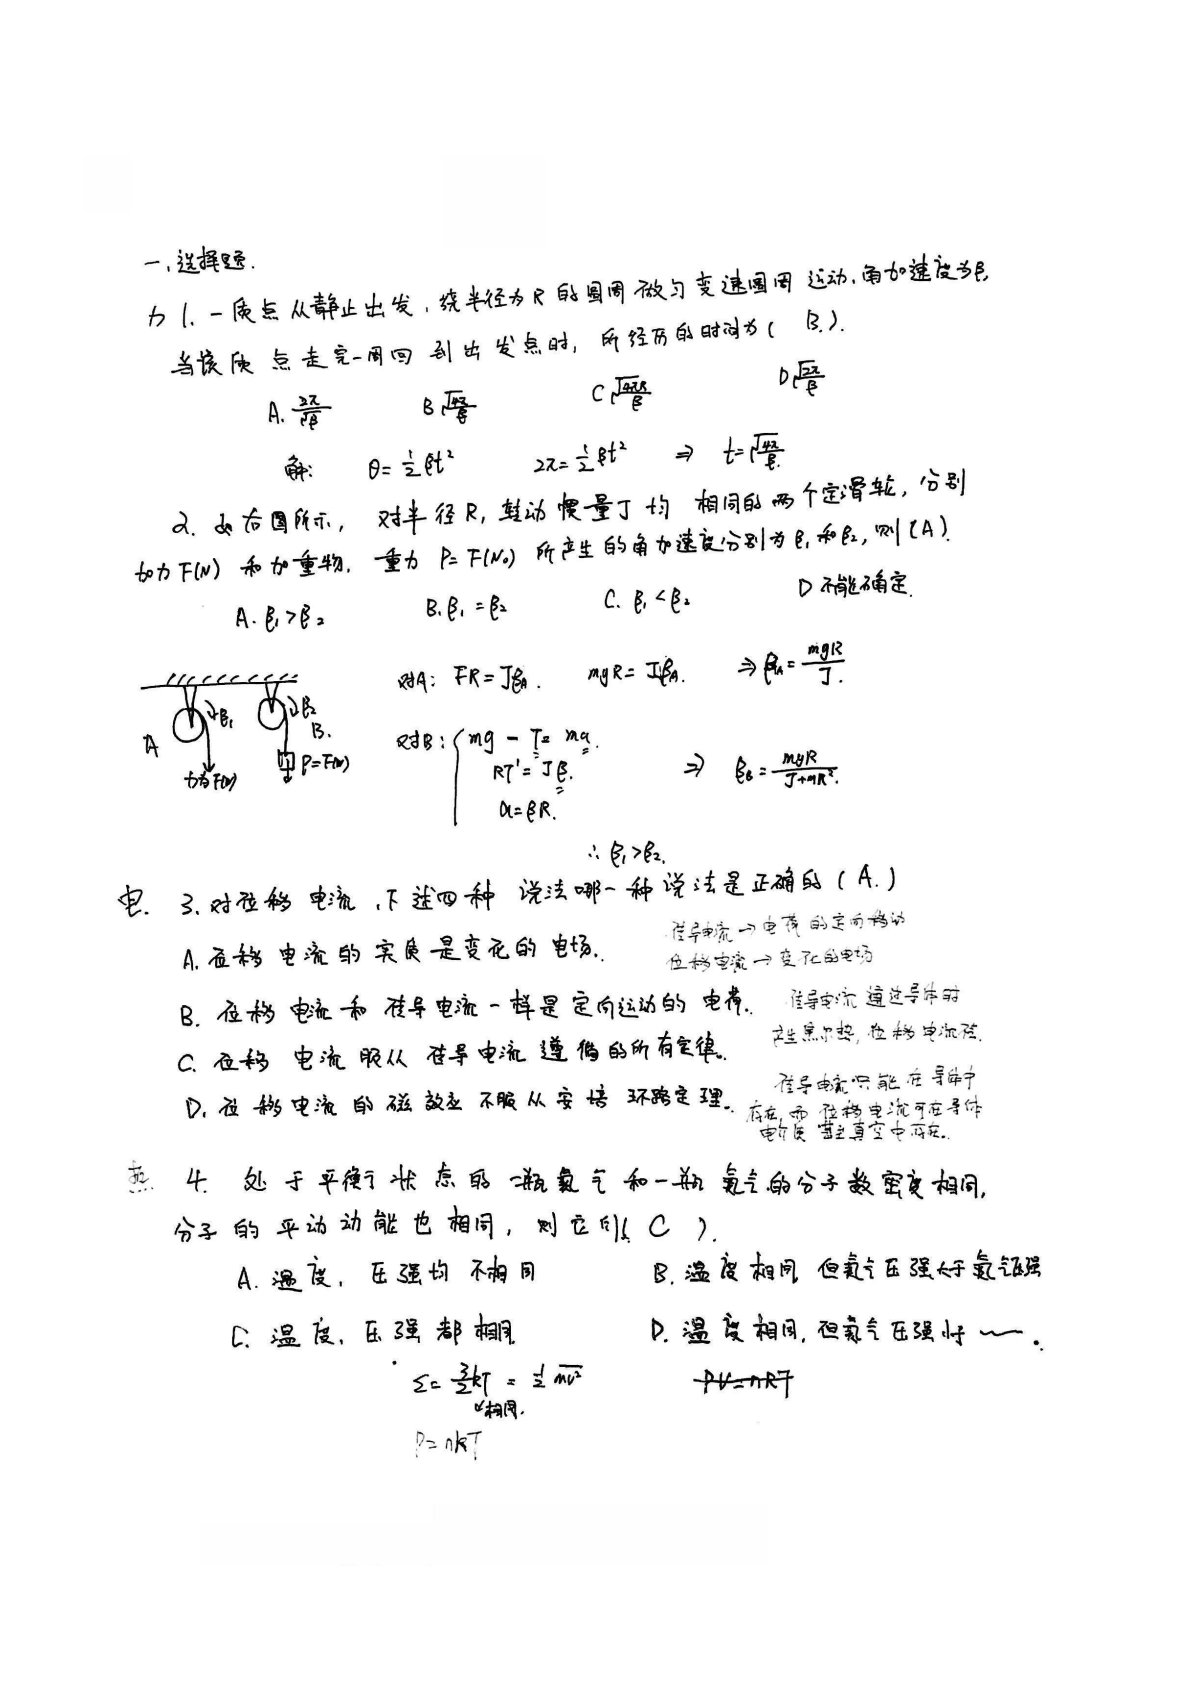 一、选择题.
力 1. 一质点从静止出发，绕半径为R的圆周做匀变速圆周运动，角加速度为β,
当该质点走完一周回到出发点时，所经历的时间为( B. ).
A. 2π/√β B √(4π/β) C √(4πR/β) D √(2π/β)
解: θ=½βt² 2π=½βt² ⇒ t=√(4π/β)
2. 如右图所示，对半径R，转动惯量J均相同的两个定滑轮，分别
加力F(N)和加重物，重力P=F(N)所产生的角加速度分别为β₁和β₂，则(A).
A. β₁>β₂ B. β₁=β₂ C. β₁<β₂ D 不能确定.
对A: FR=Jβ_A. mgR=Jβ_A. ⇒ β_A=mgR/J.
A β₁ β₂ B. 力为F(N) P=F(N)
对B: mg-T=ma.
RT'=Jβ. ⇒ β_B=mgR/(J+mR²).
a=βR.
∴ β₁>β₂.
电. 3. 对位移电流，下述四种说法哪一种说法是正确的(A.)
传导电流→电荷的定向移动
A. 位移电流的实质是变化的电场.
位移电流→变化的电场
B. 位移电流和传导电流一样是定向运动的电荷.
传导电流通过导体时
产生焦尔热，位移电流不.
C. 位移电流服从传导电流遵循的所有定律.
传导电流只能在导体中
D. 位移电流的磁效应不服从安培环路定理.
存在，而位移电流可在导体
电介质甚至真空中存在.
热. 4. 处于平衡状态的一瓶氦气和一瓶氮气的分子数密度相同,
分子的平动动能也相同，则它们( C ).
A. 温度，压强均不相同 B. 温度相同 但氦气压强大于氮气压强
C. 温度，压强都相同 D. 温度相同，但氦气压强小于 ~~.
Σ=3/2kT=½mv² PV=nRT
相同.
P=nkT